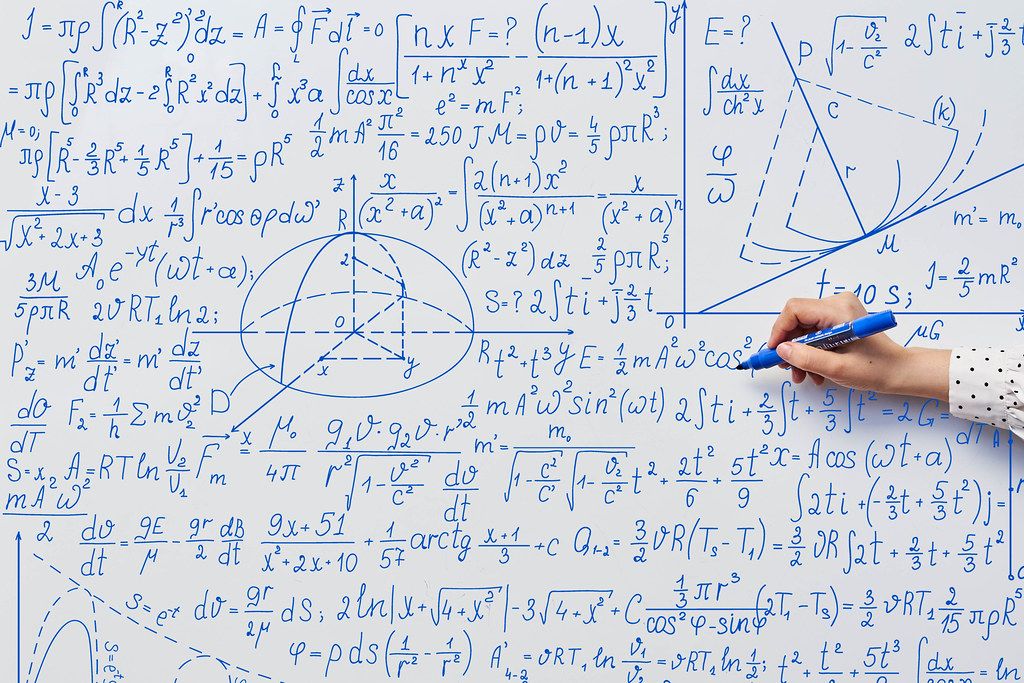 J = πρ∫(R²-z²)²dz = A = ∮F⃗dl⃗ = 0 [nx F=? / 1+nˣx² - (n-1)x / 1+(n+1)²x²] y E=? P √1-v₂/c² 2∫ti+j2/3t
= πρ[∫₀ᴿR³dz-2∫₀ᴿR²x²dz]+∫₀ᴸx³a∫dx/cosx e²=mF²; ∫dx/ch²x c (k)
μ=0; πρ[R⁵-2/3R⁵+1/5R⁵]+1/15=ρR⁵ 1/2mA²π²/16=250 J M=ρv=4/5ρπR³; φ/ω r
x-3/√x²+2x+3 dx 1/r³∫r'cosθρdω' z R x/(x²+a)²=∫2(n+1)x²/(x²+a)ⁿ⁺¹=x/(x²+a)ⁿ m'=m₀
3M/5ρπR A₀e⁻ʸᵗ(ωt+a); 2 (R²-z²)dz 2/5ρπR⁵; M J=2/5mR²
2vRT₁ln2; S=?2∫ti+j2/3t 0 t=10 S; x
0 x y μG
P'z=m'dz'/dt'=m'dz/dt' R t²+t³y E=1/2mA²ω²cos²
dv/dT F₂=1/h∑mv₂² D x 1/2mA²ω²sin²(ωt) 2∫ti+2/3∫t+5/3∫t²=2G=
S=x₂ A₂=RTlnV₂/V₁ F⃗m = μ₀/4π g₁v·g₂v·r'/r²√1-v²/c² dv/dt m'=m₀/√1-c²/c'√1-v₂/c² t²+2t²/6+5t²/9 x=Acos(ωt+a) dT A
mAω²/2 ∫2ti+(-2/3t+5/3t²)j=
dv/dt=gE/μ-gr/2 dB/dt 9x+51/x²+2x+10+1/57arctg x+1/3+C Q₁₋₂=3/2vR(Tₛ-T₁)=3/2vR∫2t+2/3t+5/3t²
S=e⁻ˣ dv=gr/2μ dS; 2ln|x+√4+x²|-3√4+x²+C 1/3πr³/cos²φ-sinφ(2T₁-Tₛ)=3/2vRT₁2/15πρR⁵
φ=ρds(1/r²-1/r²) A'₄₋₂=vRT₁ln v₁/v=vRT₁ln1/2; t²+t²/6+5t³/9 ∫dx/cosx=ln